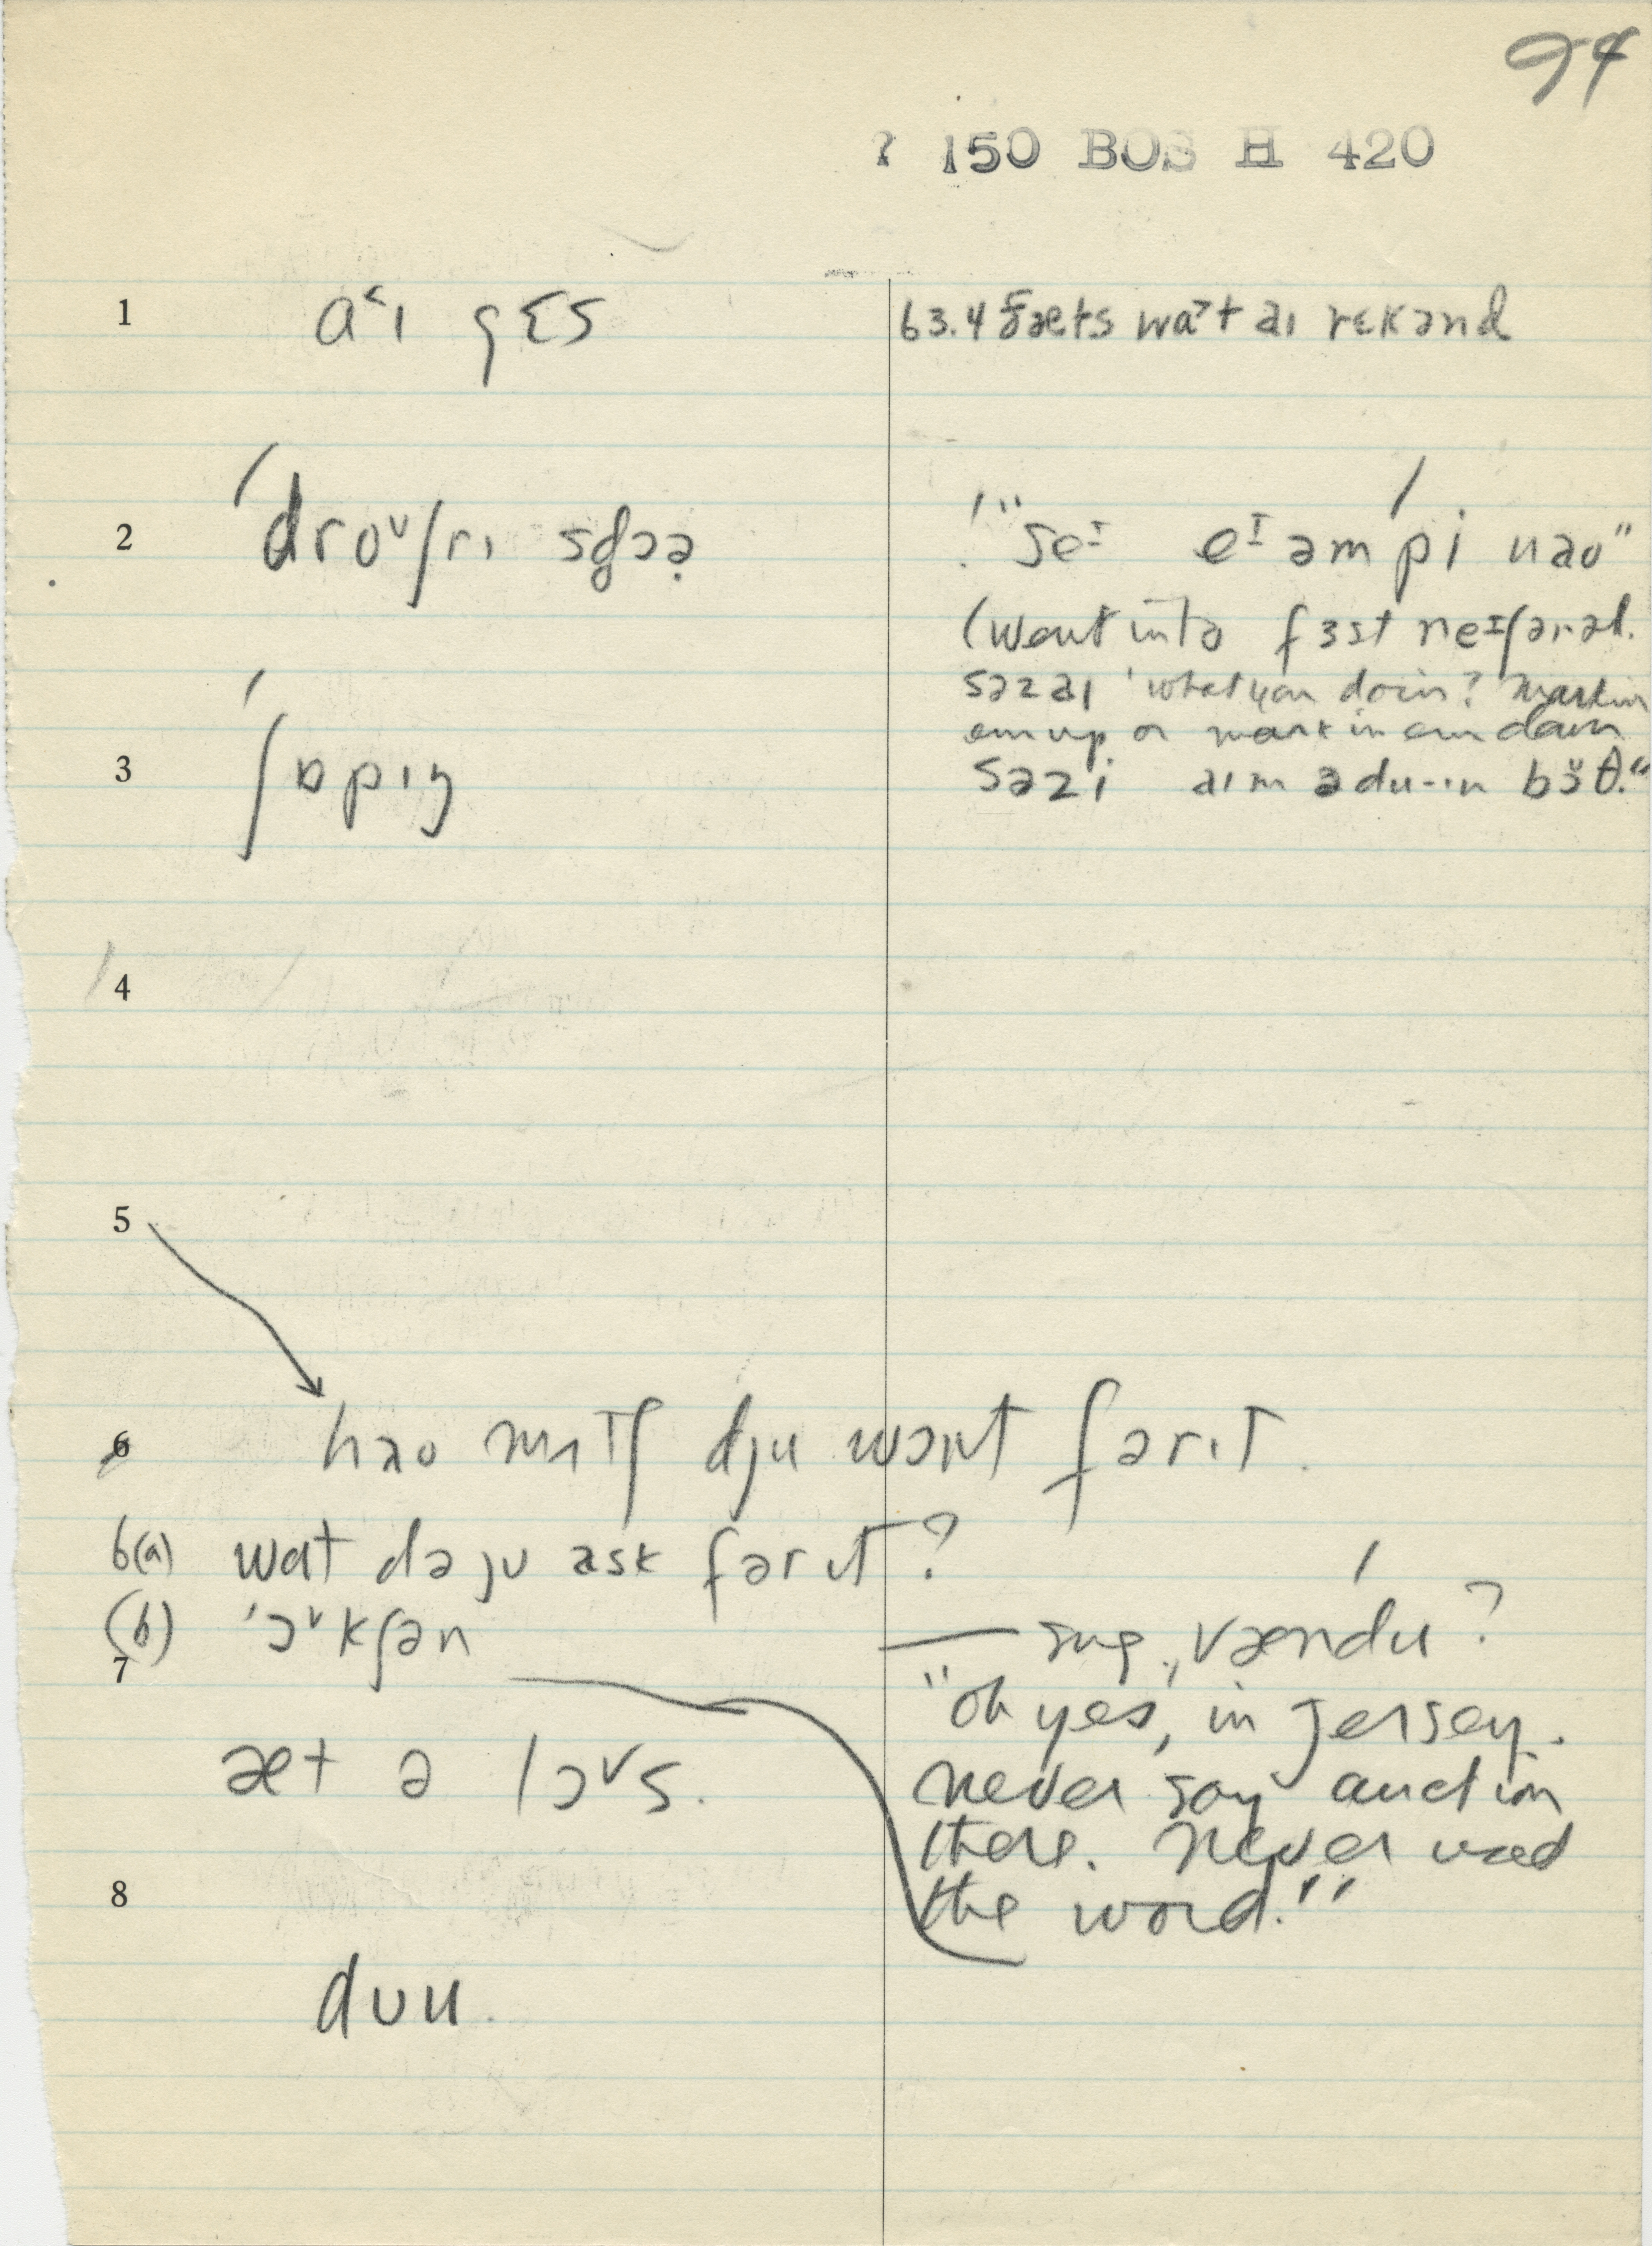 94
? 150 BOS H 420
1 a˂ɪ gɛs
63.4 ðæts wa˃t aɪ rɛkənd
2 ˈdroᵛʃrɪ sdɔə̣
"seᶦ eᶦ əm pi nao"
(went into fɜst neᶦʃənəl.
səz aɪ 'what you doin? Markin
em up or mark in em down
səz i aɪm ə du-ɪn bɜ̆θ."
3 ˈʃɒpɪŋ
4
5
6 hao mʌtʃ dju wɔnt fərɪt.
6(a) wat də ju ask fər ɪt?
(b) 'ɔᵛkʃən
— sug. vændu?
7
"oh yes, in Jersey.
æt ə lɔᵛs.
never say auction
there. Never used
8
the word."
duu.